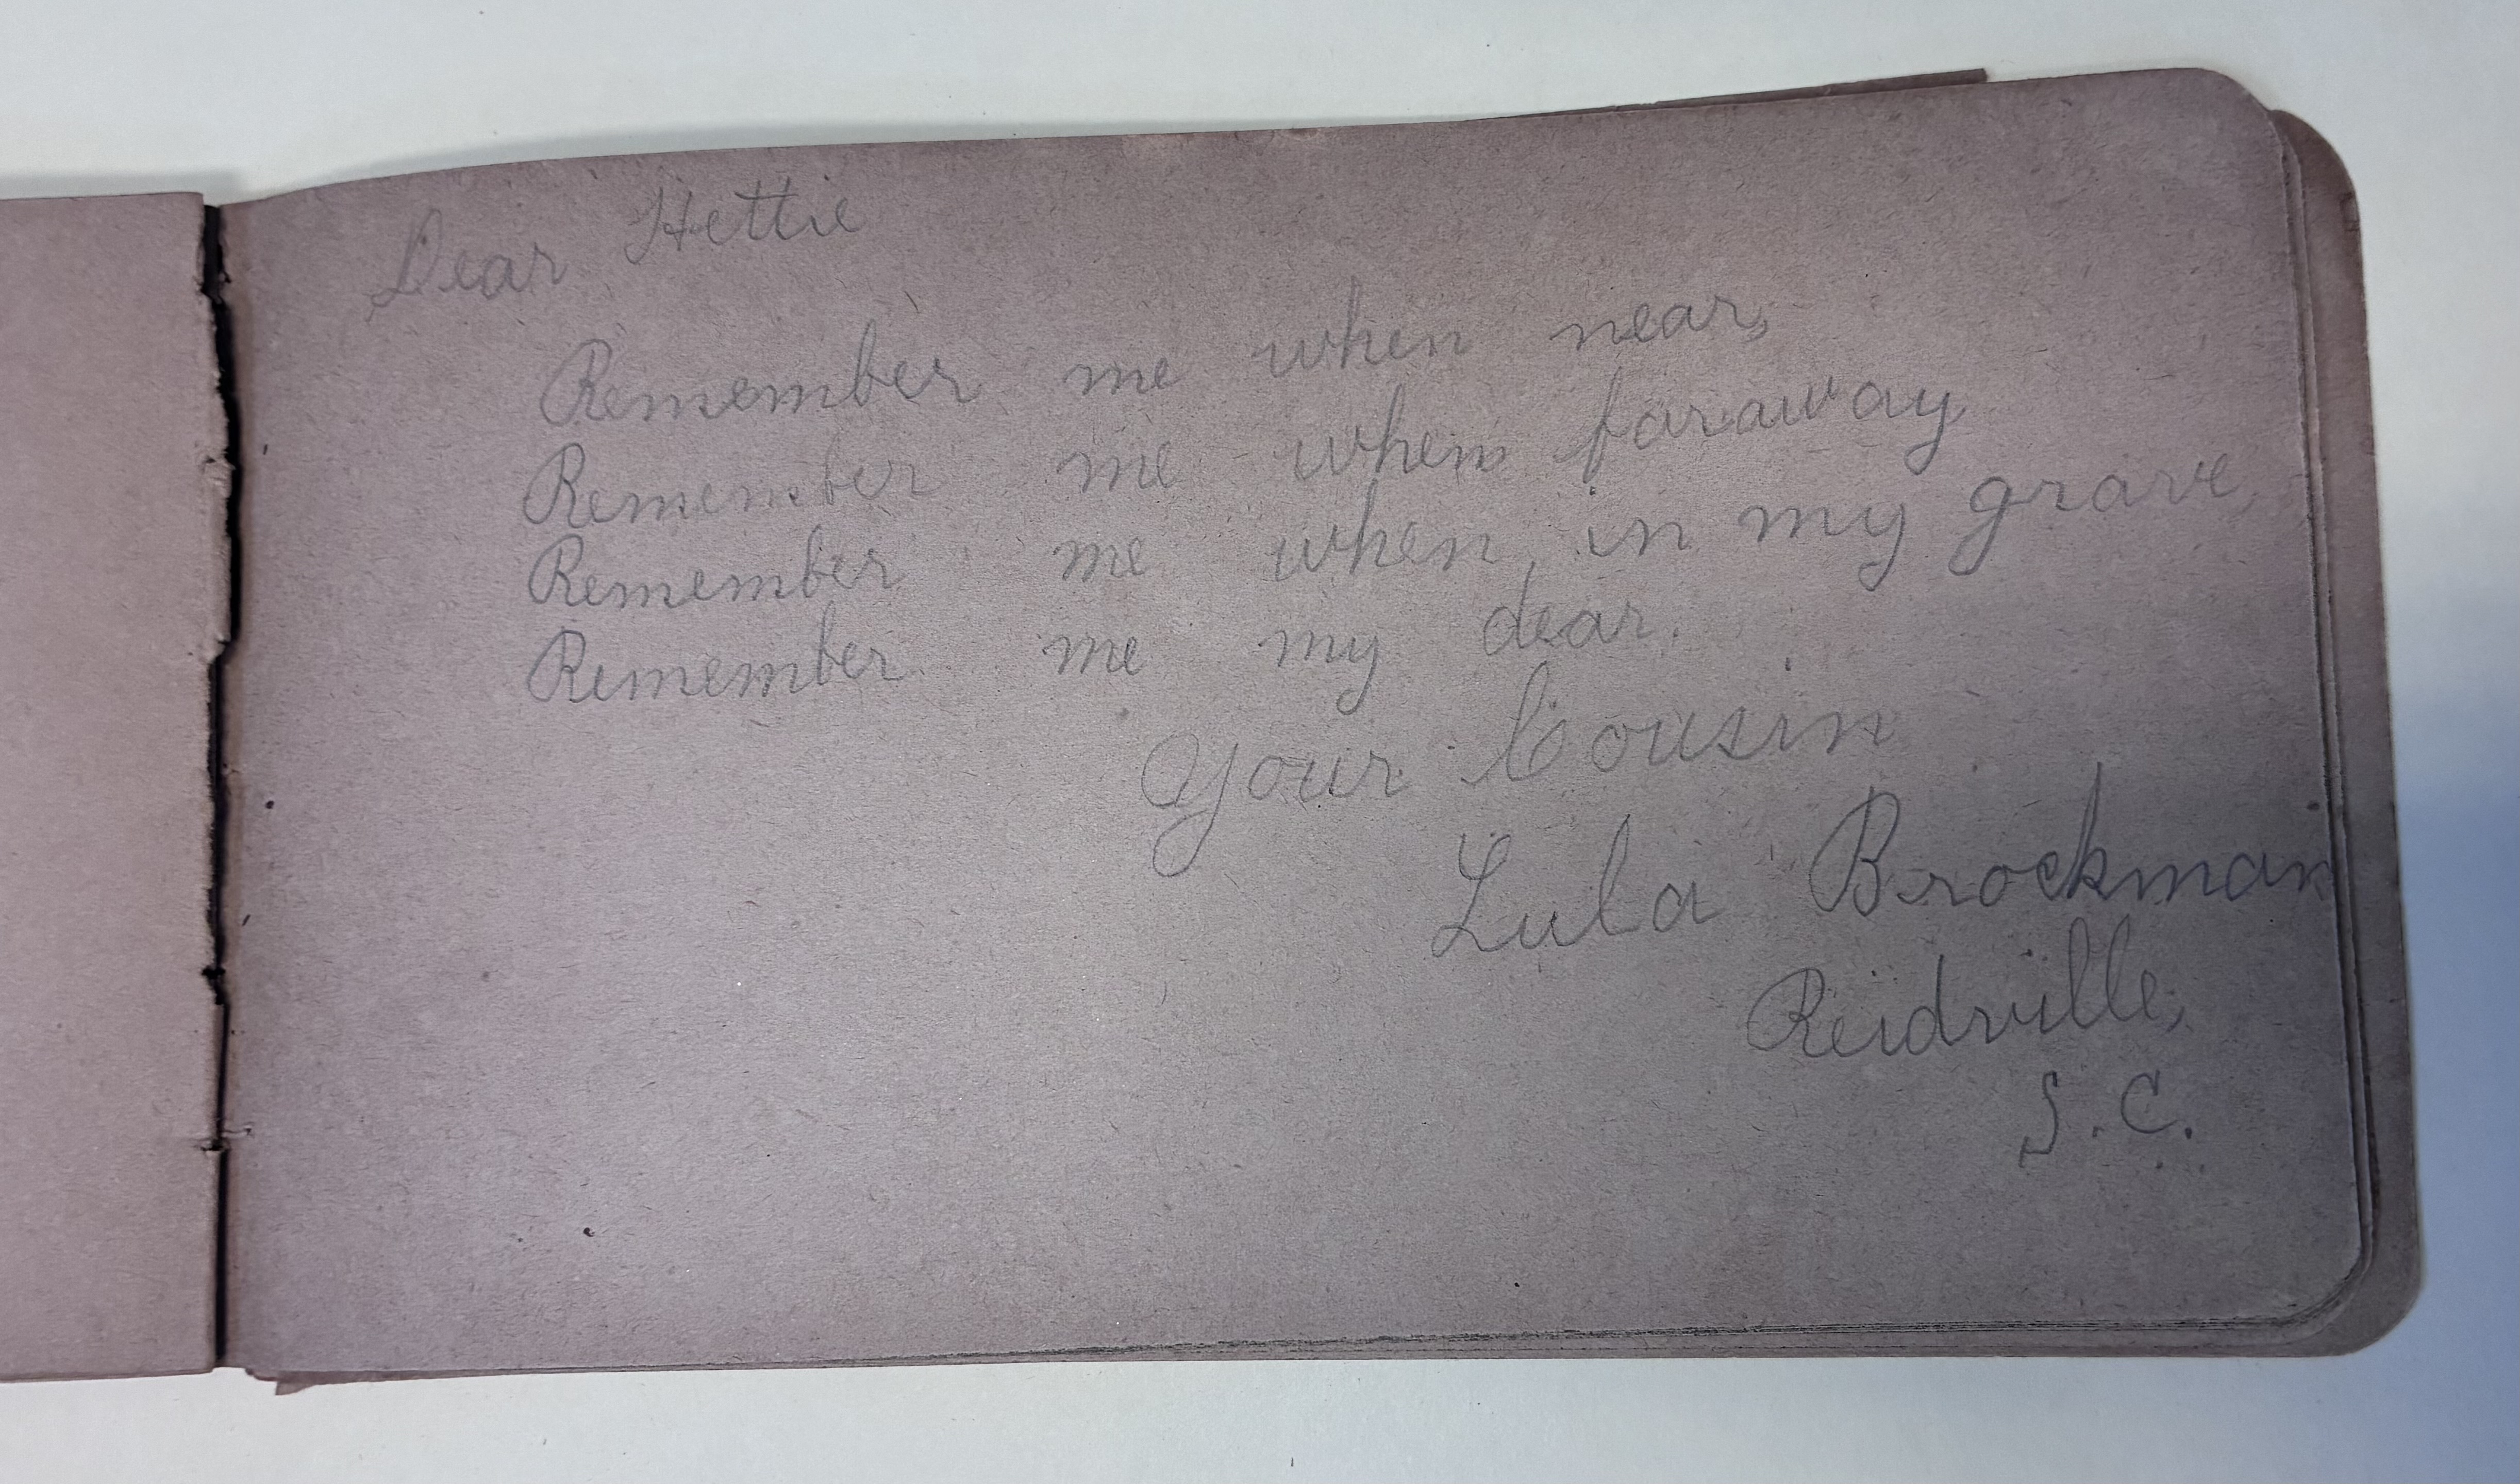 Dear Hettie
Remember me when near,
Remember me when faraway
Remember me when in my grave,
Remember me my dear.
Your Cousin
Lula Brockman
Reidville,
S.C.